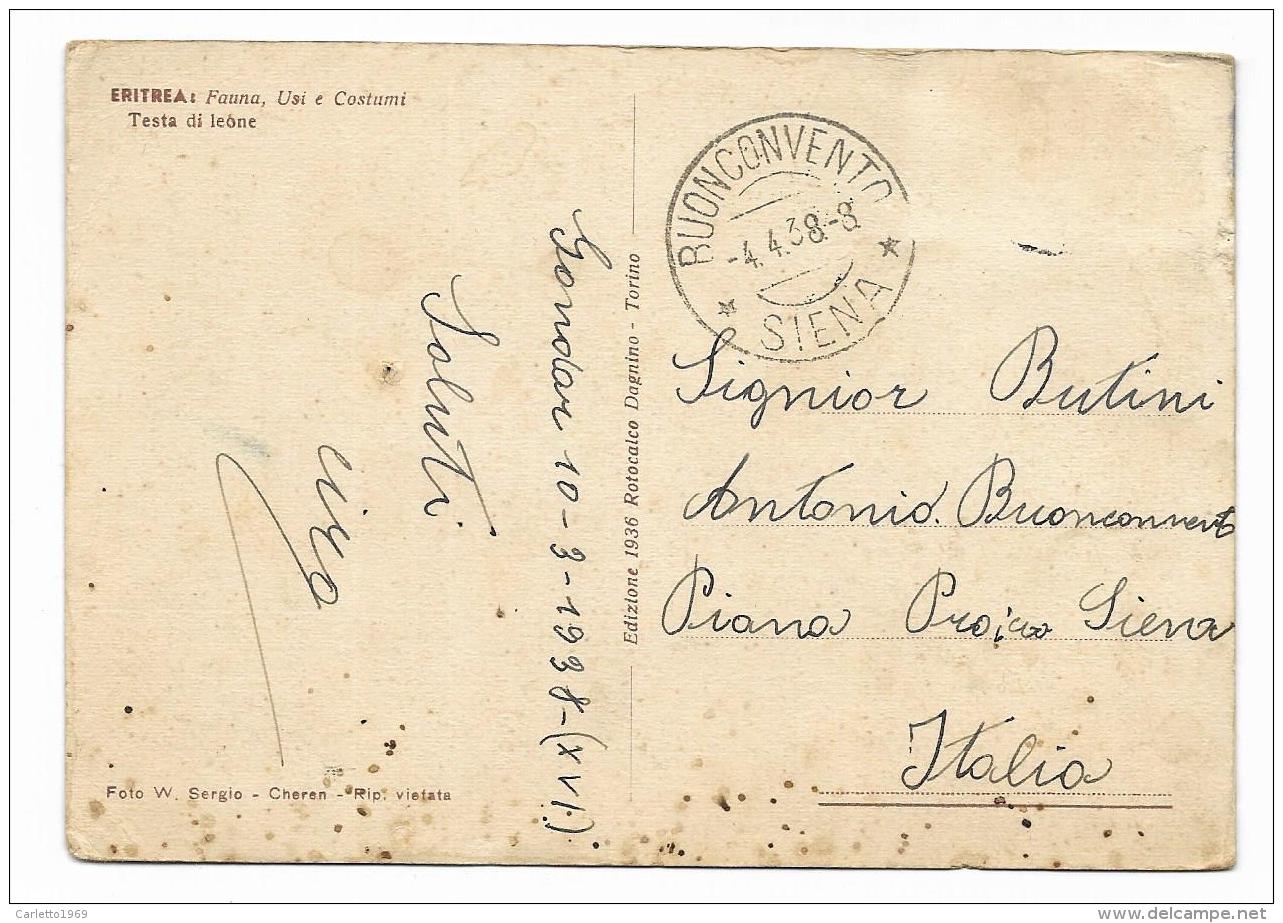 ERITREA: Fauna, Usi e Costumi
Testa di leone
Gondar 10-3-1938-(XVI)
Saluti
Foto W. Sergio - Cheren - Rip. vietata
Edizione 1936 Rotocalco Dagnino - Torino
BUONCONVENTO
-4.4.38.-8
* SIENA *
Signior Butini
Antonio. Buonconvento
Piana Siena
Italia
Carletto1969
delcampe.net